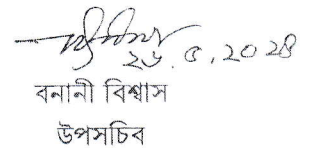 ২৬.৫.২০২৪
বনানী বিশ্বাস
উপসচিব